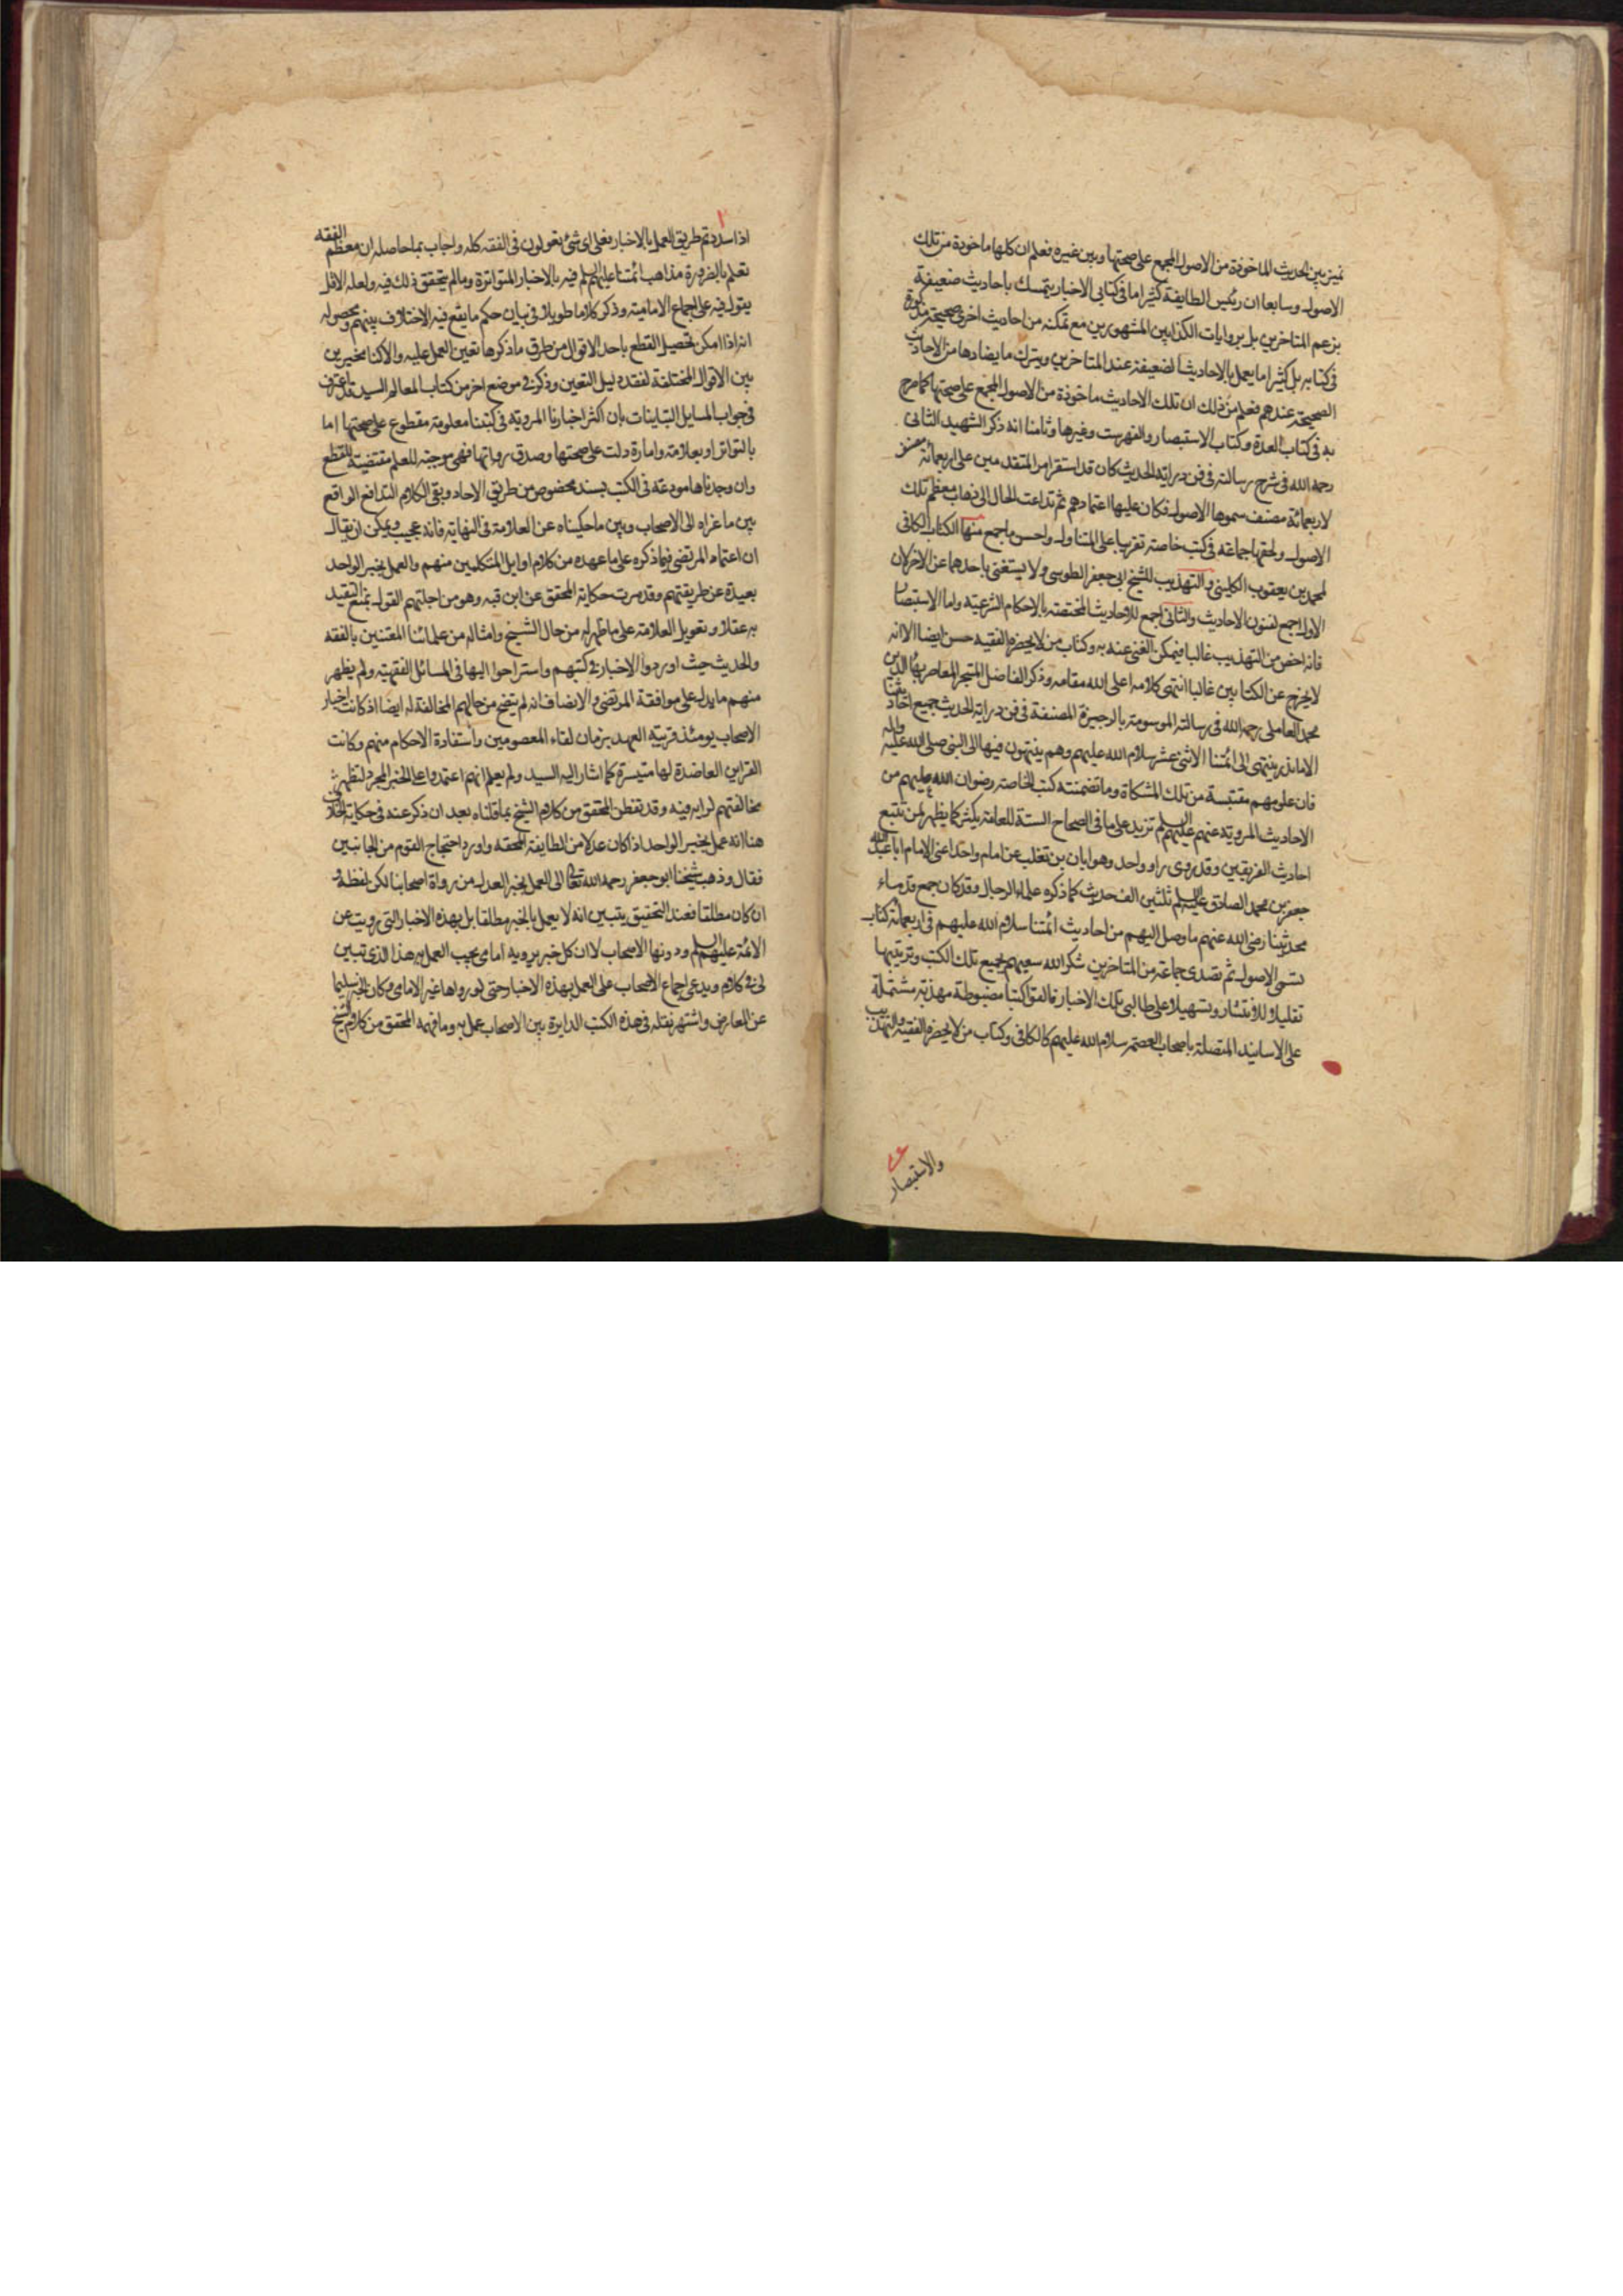 نميز بين الحديث الماخوذة من الاصول المجمع على صحتها وبين غيره فعلم ان كلها ماخوذة من تلك
الاصول وسابعا ان رئيس الطايفة كثيرا ما فى كتابى الاخبار يتمسك باحاديث ضعيفة
بزعم المتاخرين بل بروايات الكذابين المشهورين مع تمكنه من احاديث اخرى صحيحة مذكورة
فى كتابه بل كثيرا ما يعمل بالاحاديث الضعيفة عند المتاخرين ويترك ما يضادها من الاحاديث
الصحيحة عندهم فعلم من ذلك ان تلك الاحاديث ماخوذة من الاصول المجمع على صحتها كما صرح
به فى كتاب العدة وكتاب الاستبصار والفهرست وغيرها وثامنا انه ذكر الشهيد الثانى
رحمه الله فى شرح رسالته فى فن دراية الحديث كان قد استقر امر المتقدمين على اربعمائة مصنف
لاربعمائة مصنف سموها الاصول فكان عليها اعتمادهم ثم تداعت الحال الى ذهاب معظم تلك
الاصول ولحقها جماعة فى كتب خاصة تقريبا على المتناول واحسن ما جمع منها الكتاب الكافى
لمحمد بن يعقوب الكلينى والتهذيب للشيخ ابى جعفر الطوسى ولا يستغنى باحدهما عن الاخر لان
الاول اجمع لفنون الاحاديث والثانى اجمع للاحاديث المختصة بالاحكام الشرعية واما الاستبصار
فانه اخص من التهذيب غالبا فيمكن الغنى عنه به وكتاب من لا يحضره الفقيه حسن ايضا الا انه
لا يخرج عن الكتابين غالبا انتهى كلامه اعلى الله مقامه وذكر الفاضل المتبحر المعاصر بهاء الدين
محمد العاملى رحمه الله فى رسالته الموسومة بالوجيزة المصنفة فى فن دراية الحديث جميع احاديثنا
الا ما ندر ينتهى الى ائمتنا الاثنى عشر سلام الله عليهم وهم ينتهون فيها الى النبى صلى الله عليه واله
فان علومهم مقتبسة من تلك المشكاة وما تضمنته كتب الخاصة رضوان الله عليهم من
الاحاديث المروية عنهم عليهم السلم تزيد على ما فى الصحاح الستة للعامة بكثير كما يظهر لمن تتبع
احاديث الفريقين وقد روى راو واحد وهو ابان بن تغلب عن امام واحد اعنى الامام ابا عبد الله
جعفر بن محمد الصادق عليه السلم ثلثين الف حديث كما ذكره علماء الرجال وقد كان جمع قدماء
محدثينا رضى الله عنهم ما وصل اليهم من احاديث ائمتنا سلام الله عليهم فى اربعمائة كتاب
تسمى الاصول ثم تصدى جماعة من المتاخرين شكر الله سعيهم لجمع تلك الكتب وترتيبها
تقليلا للانتشار وتسهيلا على طالبى تلك الاخبار فالفوا كتبا مضبوطة مهذبة مشتملة
على الاسانيد المتصلة باصحاب العصمة سلام الله عليهم كالكافى وكتاب من لا يحضره الفقيه والتهذيب
والاستبصار
اذا سددتم طريق العمل بالاخبار فعلى اى شئ تعولون فى الفقه كله واجاب بما حاصله ان معظم الفقه
تعلم بالضرورة مذاهب ائمتنا عليهم السلم فيه بالاخبار المتواترة وما لم يتحقق ذلك فيه ولعله الاقل
يعول فيه على اجماع الامامية وذكر كلاما طويلا فى بيان حكم ما يقع فيه الاختلاف بينهم ومحصوله
انه اذا امكن تحصيل القطع باحد الاقوال من طرق ما ذكرها تعين العمل عليه والا كنا مخيرين
بين الاقوال المختلفة لفقد دليل التعيين وذكر فى موضع اخر من كتاب المعالم السيد قد اعترف
فى جواب المسايل التباينات بان اكثر اخبارنا المروية فى كتبنا معلومة مقطوع على صحتها اما
بالتواتر او بعلامة وامارة دلت على صحتها وصدق رواتها فهى موجبة للعلم مقتضية للقطع
وان وجدناها مودعة فى الكتب بسند مخصوص من طريق الاحاد وبقى الكلام التدافع الواقع
بين ما عزاه الى الاصحاب وبين ما حكيناه عن العلامة فى النهاية فانه عجيب ويمكن ان يقال
ان اعتماد المرتضى فيما ذكره على ما عهده من كلام اوايل المتكلمين منهم والعمل بخبر الواحد
بعيدة عن طريقتهم وقد مرت حكاية المحقق عن ابن قبه وهو من اجلتهم القول بمنع التقيد
به عقلا وتعويل العلامة على ما ظهر له من حال الشيخ وامثاله من علمائنا المعتنين بالفقه
والحديث حيث اوردوا الاخبار فى كتبهم واستراحوا اليها فى المسائل الفقهية ولم يظهر
منهم ما يدل على موافقة المرتضى والانصاف انه لم يتضح من حالهم المخالفة له ايضا اذ كانت اخبار
الاصحاب يومئذ قريبة العهد بزمان لقاء المعصومين واستفادة الاحكام منهم وكانت
القراين العاضدة لها متيسرة كما اشار اليه السيد ولم يعلم انهم اعتمدوا على الخبر المجرد لتظهر
مخالفتهم لرايه فيه وقد تفطن المحقق من كلام الشيخ بما قلناه بعد ان ذكر عنه فى حكاية الخلاف
هنا انه عمل بخبر الواحد اذا كان عدلا من الطايفة المحقة واورد احتجاج القوم من الجانبين
فقال وذهب شيخنا ابو جعفر رحمه الله تعالى الى العمل بخبر العدل من رواة اصحابنا لكن لفظه و
ان كان مطلقا فعند التحقيق يتبين انه لا يعمل بالخبر مطلقا بل بهذه الاخبار التى رويت عن
الائمة عليهم السلم ودونها الاصحاب لا ان كل خبر يرويه امامى يجب العمل به هذا الذى تبين
لى فى كلامه ويدعى اجماع الاصحاب على العمل بهذه الاخبار حتى لو رواها غير الامامى وكان الخبر سليما
عن المعارض واشتهر نقله فى هذه الكتب الدايرة بين الاصحاب عمل به وما فهمه المحقق من كلام الشيخ